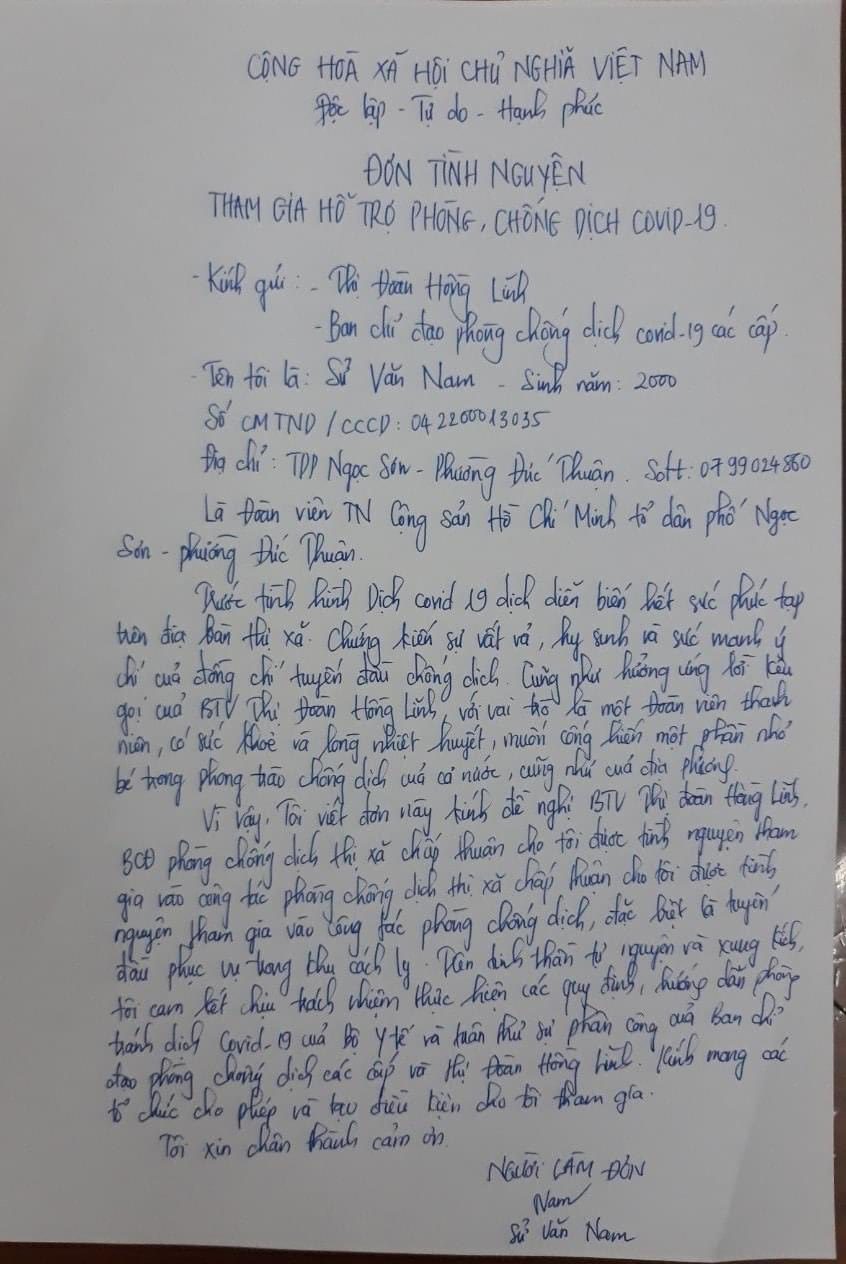 CỘNG HOÀ XÃ HỘI CHỦ NGHĨA VIỆT NAM
Độc lập - Tự do - Hạnh phúc
ĐƠN TÌNH NGUYỆN
THAM GIA HỖ TRỢ PHÒNG, CHỐNG DỊCH COVID-19.
- Kính gửi: - Thị Đoàn Hồng Lĩnh
- Ban chỉ đạo phòng chống dịch covid-19 các cấp.
- Tên tôi là: Sử Văn Nam - Sinh năm: 2000
Số CMTND / CCCD: 042200013035
Địa chỉ: TDP Ngọc Sơn - Phường Đức Thuận. Sđtt: 0799024860
Là Đoàn viên TN Cộng sản Hồ Chí Minh tổ dân phố Ngọc
Sơn - phường Đức Thuận.
Trước tình hình Dịch covid 19 dịch diễn biến hết sức phức tạp
trên địa bàn thị xã. Chứng kiến sự vất vả, hy sinh và sức mạnh ý
chí của đồng chí tuyến đầu chống dịch. Cũng như hưởng ứng lời kêu
gọi của BTV Thị Đoàn Hồng Lĩnh, với vai trò là một Đoàn viên thanh
niên, có sức khoẻ và lòng nhiệt huyết, muốn cống hiến một phần nhỏ
bé trong phong trào chống dịch của cả nước, cũng như của địa phương.
Vì vậy, Tôi viết đơn này kính đề nghị BTV Thị đoàn Hồng Lĩnh,
BCĐ phòng chống dịch thị xã chấp thuận cho tôi được tình nguyện tham
gia vào công tác phòng chống dịch thị xã chấp thuận cho tôi được tình
nguyện tham gia vào công tác phòng chống dịch, đặc biệt là tuyến
đầu phục vụ trong khu cách ly. Trên tinh thần tự nguyện và xung kích,
tôi cam kết chịu trách nhiệm thực hiện các quy định, hướng dẫn phòng
tránh dịch Covid-19 của Bộ Y tế và tuân thủ sự phân công của Ban chỉ
đạo phòng chống dịch các cấp và thị Đoàn Hồng Lĩnh. Kính mong các
tổ chức cho phép và tạo điều kiện cho tôi tham gia.
Tôi xin chân thành cảm ơn.
NGƯỜI LÀM ĐƠN
Nam
Sử Văn Nam